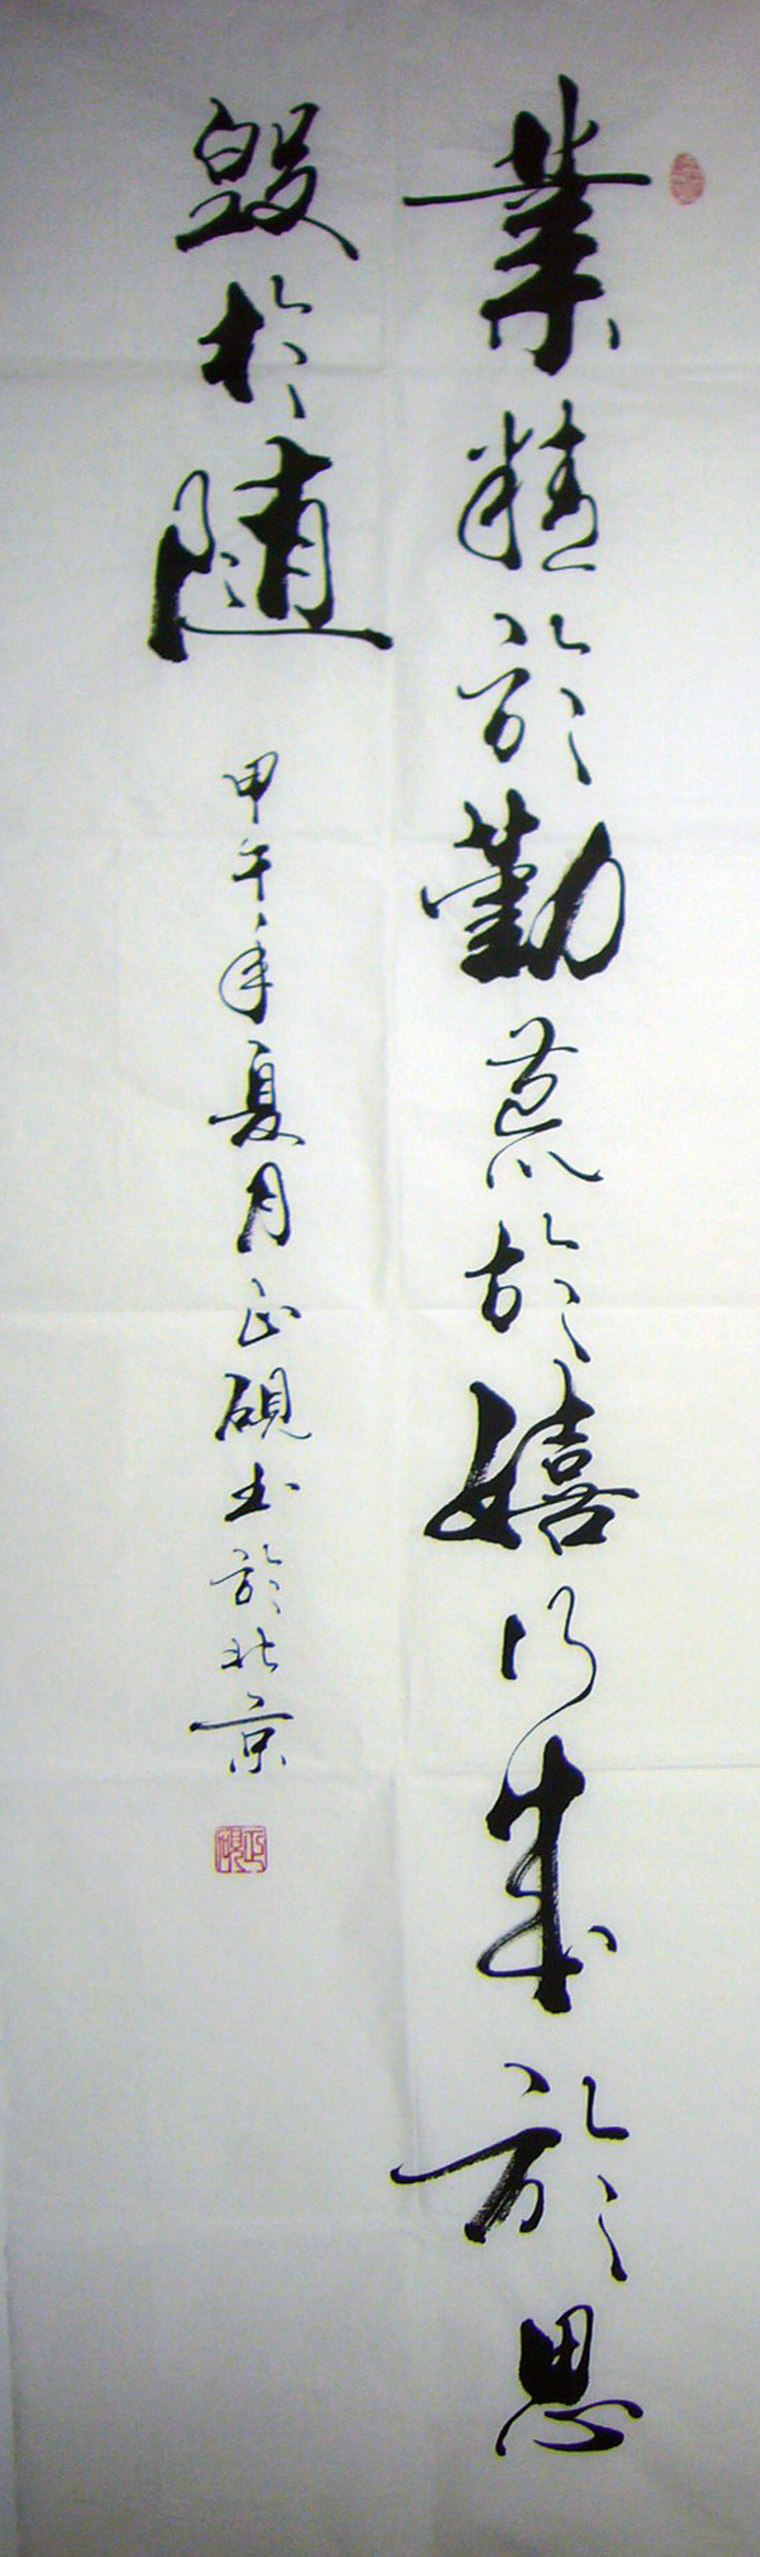 業精於勤荒於嬉行成於思
毀於随
甲午年夏月正硯书於北京
正硯